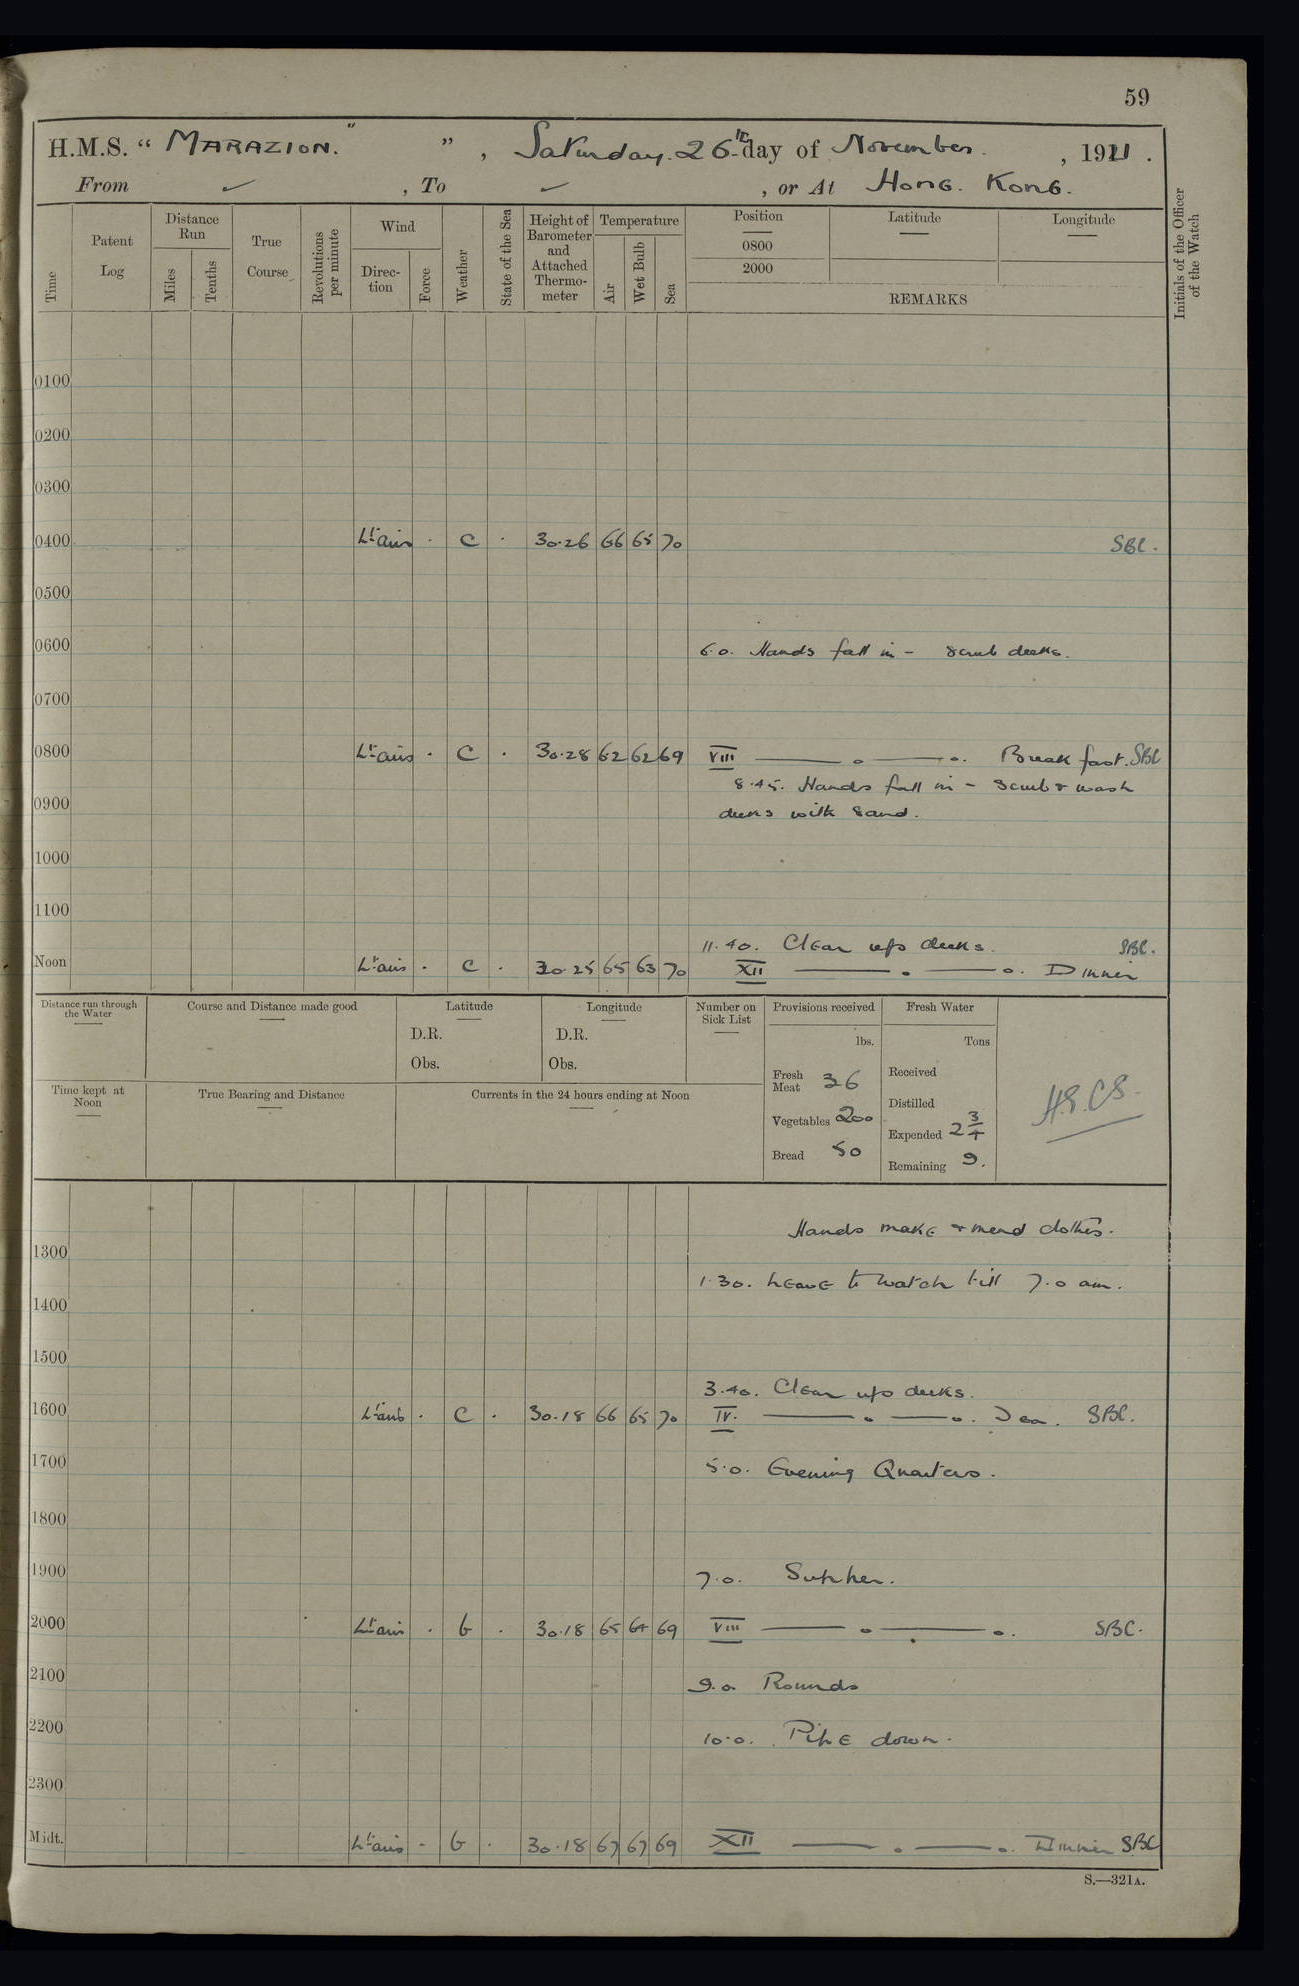 59
H.M.S. “ MARAZION. ” ” , Saturday. 26th day of November. , 1921 .
From ✓ , To ✓ , or At HONG. KONG.
Time
Patent Log
Distance Run
Miles
Tenths
True Course
Revolutions per minute
Wind
Direction
Force
Weather
State of the Sea
Height of Barometer and Attached Thermometer
Temperature
Air
Wet Bulb
Sea
Position
0800
2000
Latitude
Longitude
REMARKS
Initials of the Officer of the Watch
0100
0200
0300
0400 Lt airs . C . 30.26 66 65 70 SBC.
0500
0600 6.0. Hands fall in – scrub decks.
0700
0800 Lt airs . C . 30.28 62 62 69 VIII ——— o ——— o. Breakfast. SBC
8.45. Hands fall in – Scrub & wash
0900 decks with sand.
1000
1100
11.40. Clear up decks. SBC.
Noon Lt airs . C . 30.25 65 63 70 XII ——— o ——— o. Dinner
Distance run through the Water
Course and Distance made good
Latitude
D.R.
Obs.
Longitude
D.R.
Obs.
Number on Sick List
Provisions received
lbs.
Fresh Meat 36
Vegetables 200
Bread 50
Fresh Water
Tons
Received
Distilled
Expended 2 3/4
Remaining 9.
H.S.CS.
Time kept at Noon
True Bearing and Distance
Currents in the 24 hours ending at Noon
Hands make & mend clothes.
1300
1.30. Leave to watch till 7.0 am.
1400
1500
3.40. Clear up decks.
1600 Lt airs . C . 30.18 66 65 70 IV. ——— o ——— o. Tea. SBC.
1700 5.0. Evening Quarters.
1800
1900 7.0. Supper.
2000 Lt airs . b . 30.18 65 64 69 VIII ——— o ——— o. SBC.
2100 9.0 Rounds
2200 10.0. Pipe down.
2300
Midt. Lt airs . b . 30.18 67 67 69 XII ——— o ——— o. Dinner SBC
S.—321A.